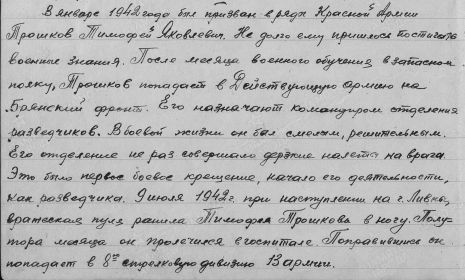 В январе 1942 года был призван в ряды Красной Армии
Трошков Тимофей Яковлевич. Не долго ему пришлось постигать
военные знания. После месяца военного обучения в запасном
полку, Трошков попадает в Действующую армию на
Брянский фронт. Его назначают командиром отделения
разведчиков. В боевой жизни он был смелым, решительным.
Его отделение не раз совершало дерзкие налеты на врага.
Это было первое боевое крещение, начало его деятельности,
как разведчика. 9 июля 1942 г. при наступлении на г. Ливны,
вражеская пуля ранила Тимофея Трошкова в ногу. Полу-
тора месяца он пролечился в госпитале. Поправившись он
попадает в 8ую стрелковую дивизию 13 армии.